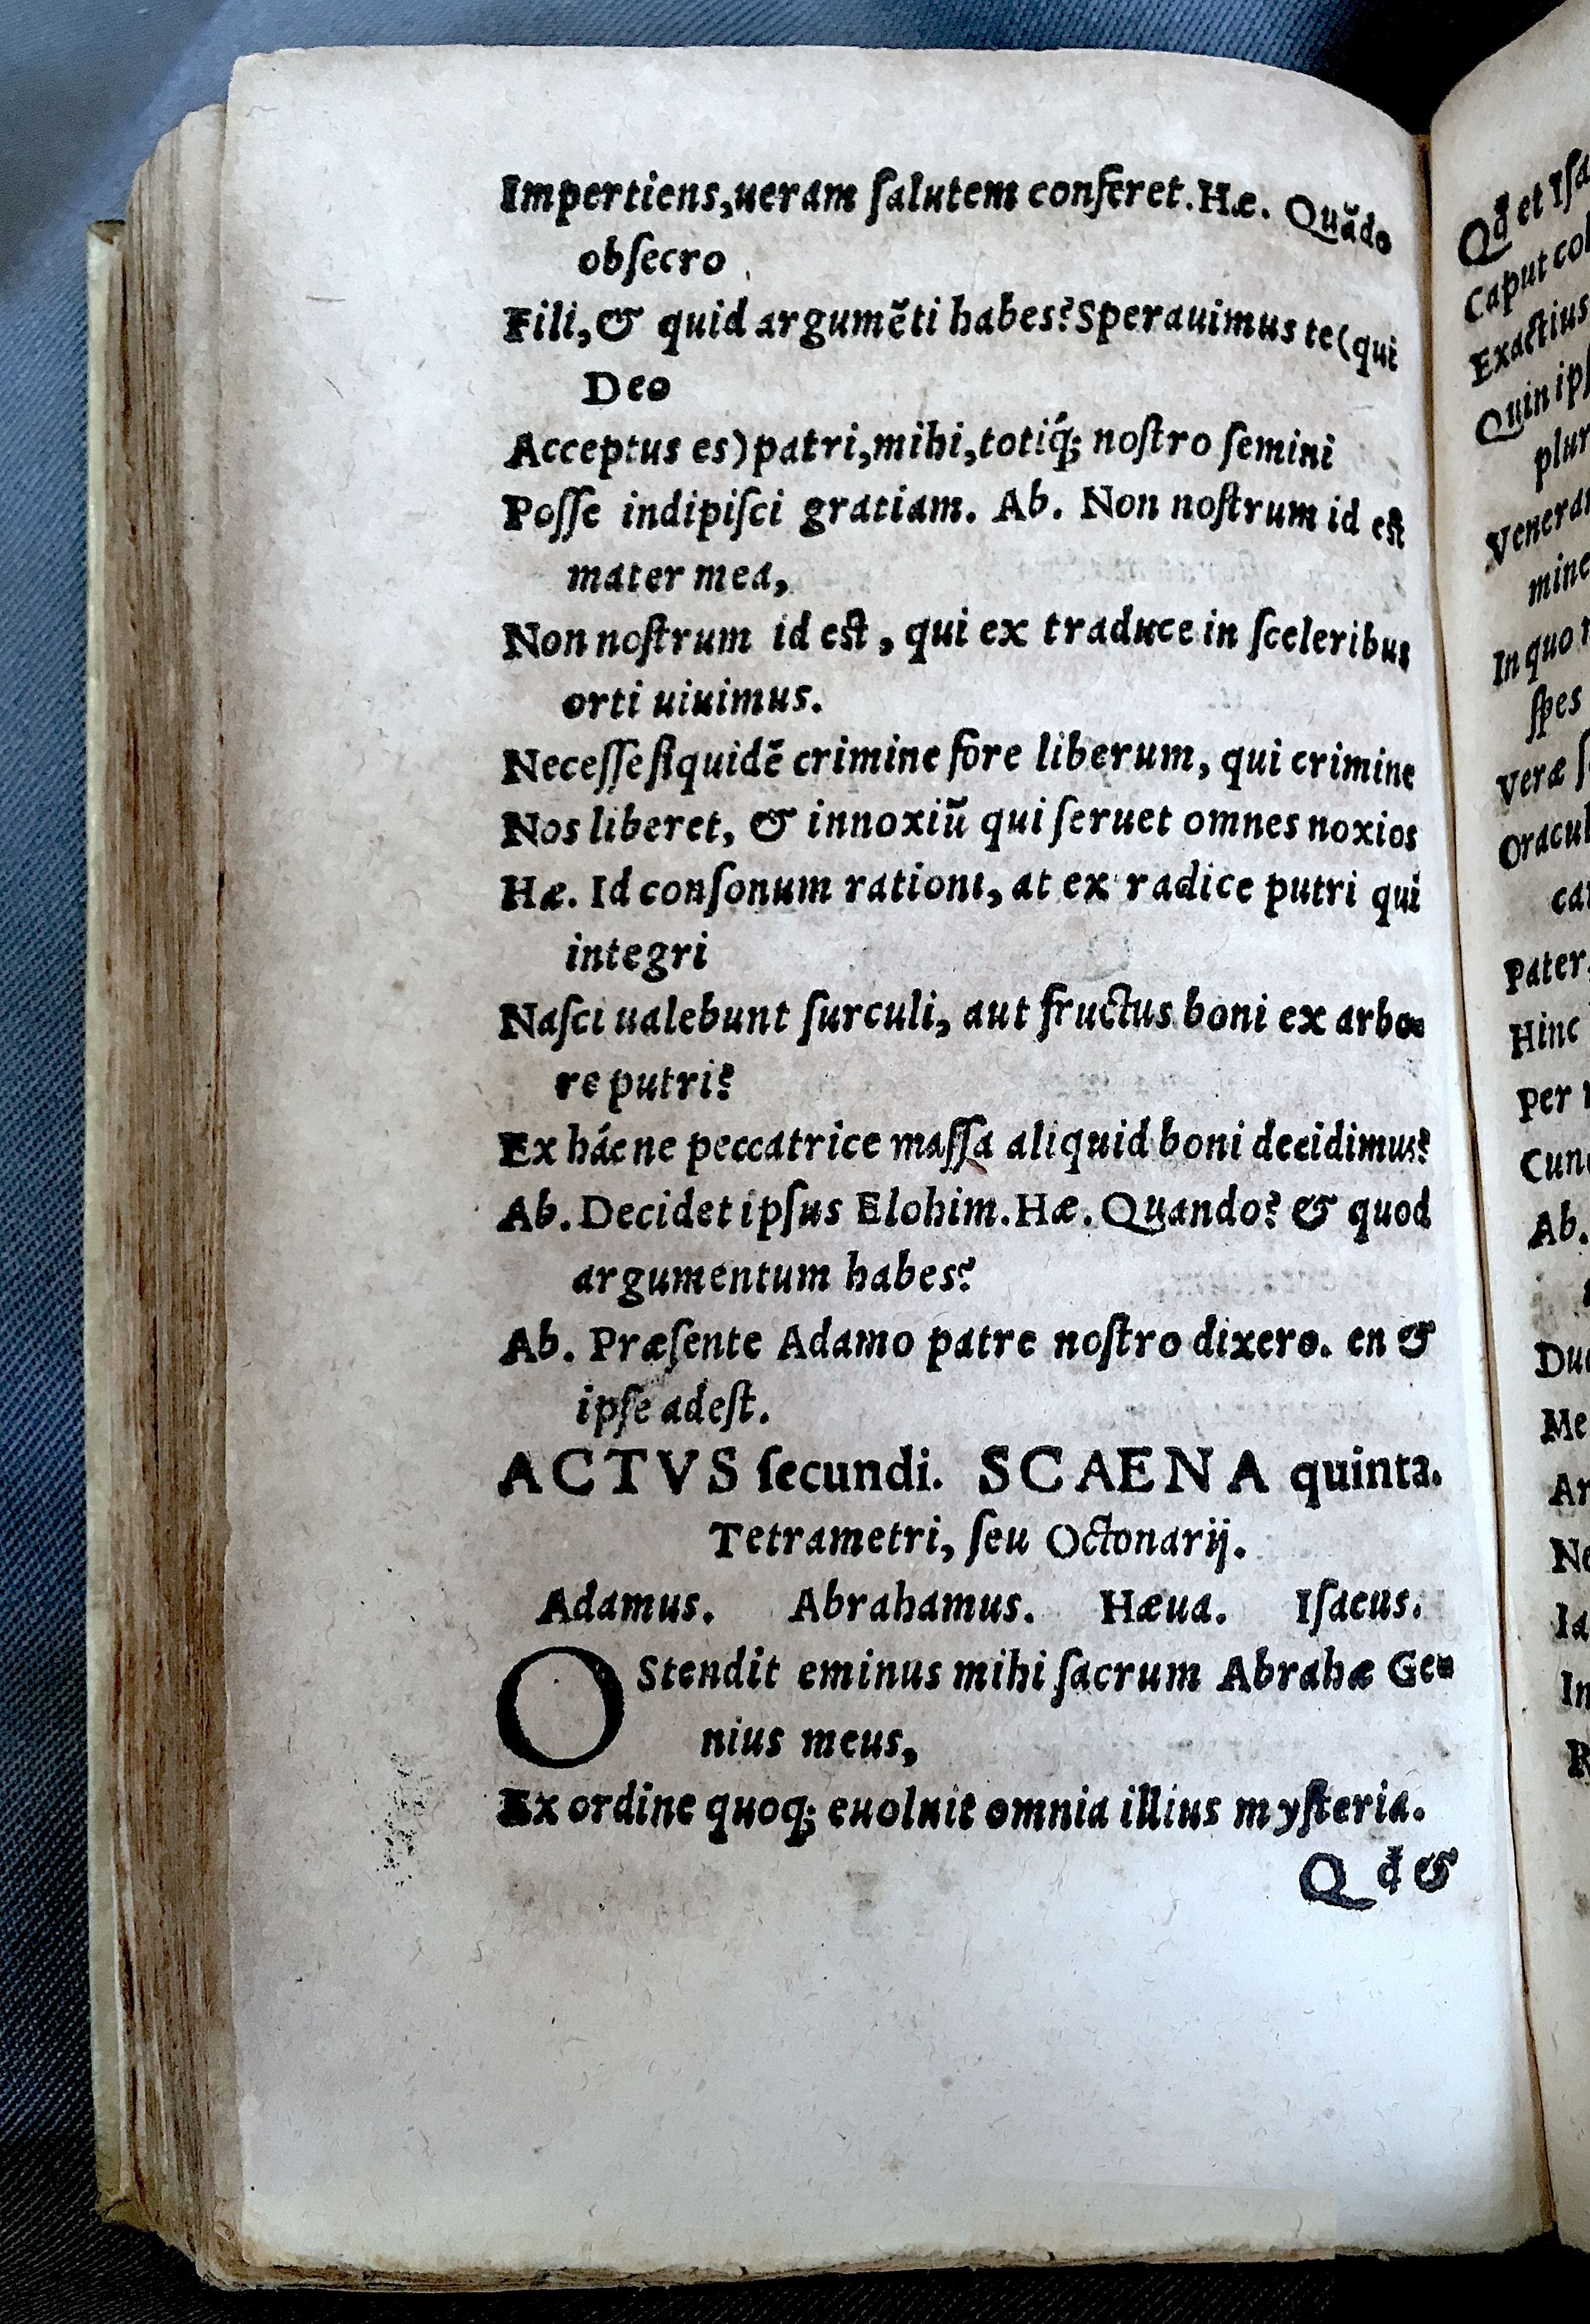 Impertiens,ueram ſalutem conferet.Hæ. Quãdo
obſecro
Fili,& quid argumẽti habes?Sperauimus te(qui
Deo
Acceptus es)patri,mihi,totiq́; noſtro ſemini
Poſſe indipiſci gratiam. Ab. Non noſtrum id eſt
mater mea,
Non noſtrum id eſt, qui ex traduce in ſceleribus
orti uiuimus.
Neceſſe ſiquidẽ crimine fore liberum, qui crimine
Nos liberet, & innoxiũ qui ſeruet omnes noxios
Hæ. Id conſonum rationi, at ex radice putri qui
integri
Naſci ualebunt ſurculi, aut fructus boni ex arbo=
re putri?
Ex hácne peccatrice maſſa aliquid boni decidimus?
Ab. Decidet ipſus Elohim.Hæ. Quando? & quod
argumentum habes?
Ab. Præſente Adamo patre noſtro dixero. en &
ipſe adeſt.
ACTVS ſecundi. SCAENA quinta.
Tetrametri, ſeu Octonarij.
Adamus. Abrahamus. Hæua. Iſacus.
OStendit eminus mihi ſacrum Abrahæ Ge=
nius meus,
Ex ordine quoq; euoluit omnia illius myſteria.
Qđ &
Qđ et Iſa
Caput co
Exactius
Quin ip
plur
Venera
mine
In quo
ſpes
Veræ
Oracul
ca
Pater,
Hinc
Per
Cun
Ab.
Du
Me
Ar
Ne
Ia
In